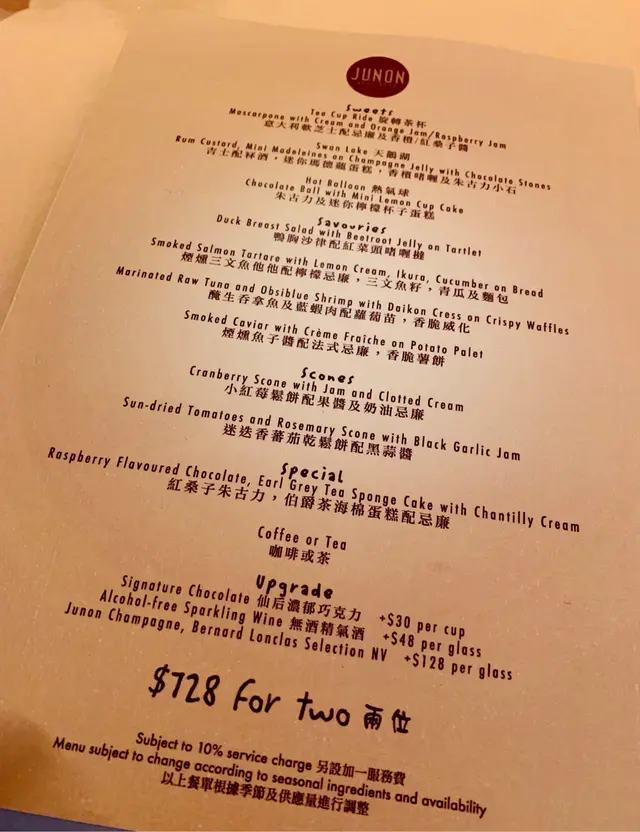 JUNON
Sweets
Tea Cup Ride 旋轉茶杯
Mascarpone with Cream and Orange Jam/Raspberry Jam
意大利軟芝士配忌廉及香橙/紅桑子醬
Swan Lake 天鵝湖
Rum Custard, Mini Madeleines on Champagne Jelly with Chocolate Stones
吉士配冧酒，迷你瑪德蓮蛋糕，香檳啫喱及朱古力小石
Hot Balloon 熱氣球
Chocolate Ball with Mini Lemon Cup Cake
朱古力及迷你檸檬杯子蛋糕
Savouries
Duck Breast Salad with Beetroot Jelly on Tartlet
鴨胸沙律配紅菜頭啫喱撻
Smoked Salmon Tartare with Lemon Cream, Ikura, Cucumber on Bread
煙燻三文魚他他配檸檬忌廉，三文魚籽，青瓜及麵包
Marinated Raw Tuna and Obsiblue Shrimp with Daikon Cress on Crispy Waffles
醃生吞拿魚及藍蝦肉配蘿蔔苗，香脆威化
Smoked Caviar with Crème Fraîche on Potato Palet
煙燻魚子醬配法式忌廉，香脆薯餅
Scones
Cranberry Scone with Jam and Clotted Cream
小紅莓鬆餅配果醬及奶油忌廉
Sun-dried Tomatoes and Rosemary Scone with Black Garlic Jam
迷迭香蕃茄乾鬆餅配黑蒜醬
Special
Raspberry Flavoured Chocolate, Earl Grey Tea Sponge Cake with Chantilly Cream
紅桑子朱古力，伯爵茶海棉蛋糕配忌廉
Coffee or Tea
咖啡或茶
Upgrade
Signature Chocolate 仙后濃郁巧克力 +$30 per cup
Alcohol-free Sparkling Wine 無酒精氣酒 +$48 per glass
Junon Champagne, Bernard Lonclas Selection NV +$128 per glass
$728 For two 兩位
Subject to 10% service charge 另設加一服務費
Menu subject to change according to seasonal ingredients and availability
以上餐單根據季節及供應量進行調整